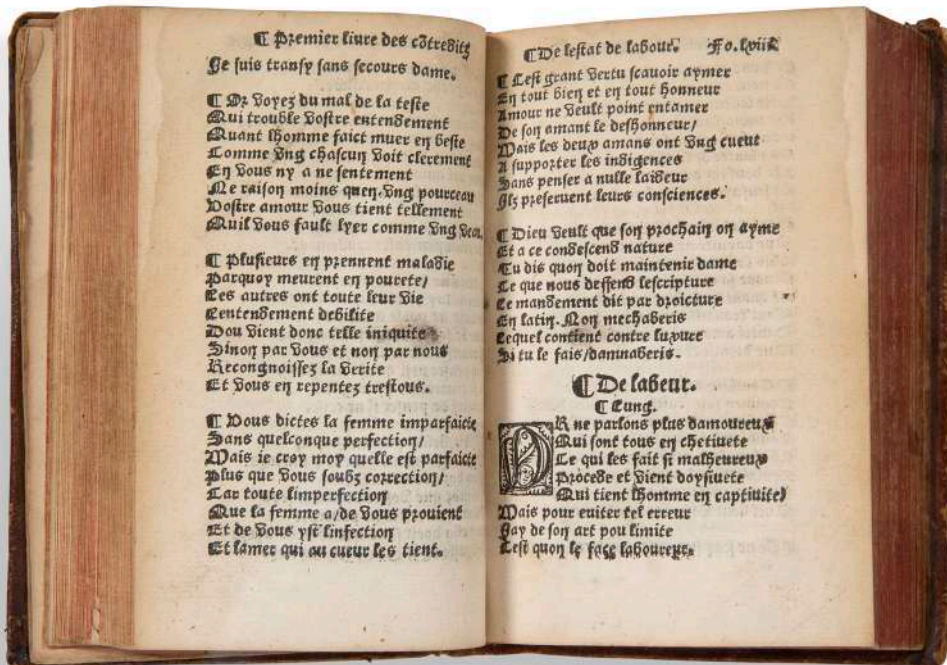 ¶ Premier liure des cõtreditz
Je suis transy sans secours dame.
¶ Or voyez du mal de la teste
Qui trouble vostre entendement
Quant lhomme faict muer en beste
Comme vng chascun voit clerement
En vous ny a ne sentement
Ne raison moins quen vng pourceau
Vostre amour vous tient tellement
Quil vous fault lyer comme vng veau.
¶ Plusieurs en prennent maladie
Parquoy meurent en pourete/
Les autres ont toute leur vie
Lentendement debilite
Dou vient donc telle iniquite
Sinon par vous et non par nous
Recongnoissez la verite
Et vous en repentez trestous.
¶ Vous dictes la femme imparfaicte
Sans quelconque perfection/
Mais ie croy moy quelle est parfaicte
Plus que vous soubz correction/
Car toute limperfection
Que la femme a/de vous prouient
Et de vous yst linfection
Et lamer qui au cueur les tient.
¶ De lestat de labour. Fo.lviii
¶ Cest grant vertu scauoir aymer
En tout bien et en tout honneur
Amour ne veult point entamer
De son amant le deshonneur/
Mais les deux amans ont vng cueur
A supporter les indigences
Sans penser a nulle laideur
Ilz preseruent leurs consciences.
¶ Dieu veult que son prochain on ayme
Et a ce condescend nature
Tu dis quon doit maintenir dame
Ce que nous deffend lescripture
Le mandement dit par droicture
En latin. Non mechaberis
Lequel contient contre luxure
Si tu le fais/damnaberis.
¶ De labeur.
¶ Lung.
OR ne parlons plus damoureux
Qui sont tous en chetiuete
Ce qui les fait si malheureux
Procede et vient doysiuete
Qui tient lhomme en captiuite/
Mais pour euiter tel erreur
Jay de son art pou limite
Cest quon le face laboureur.